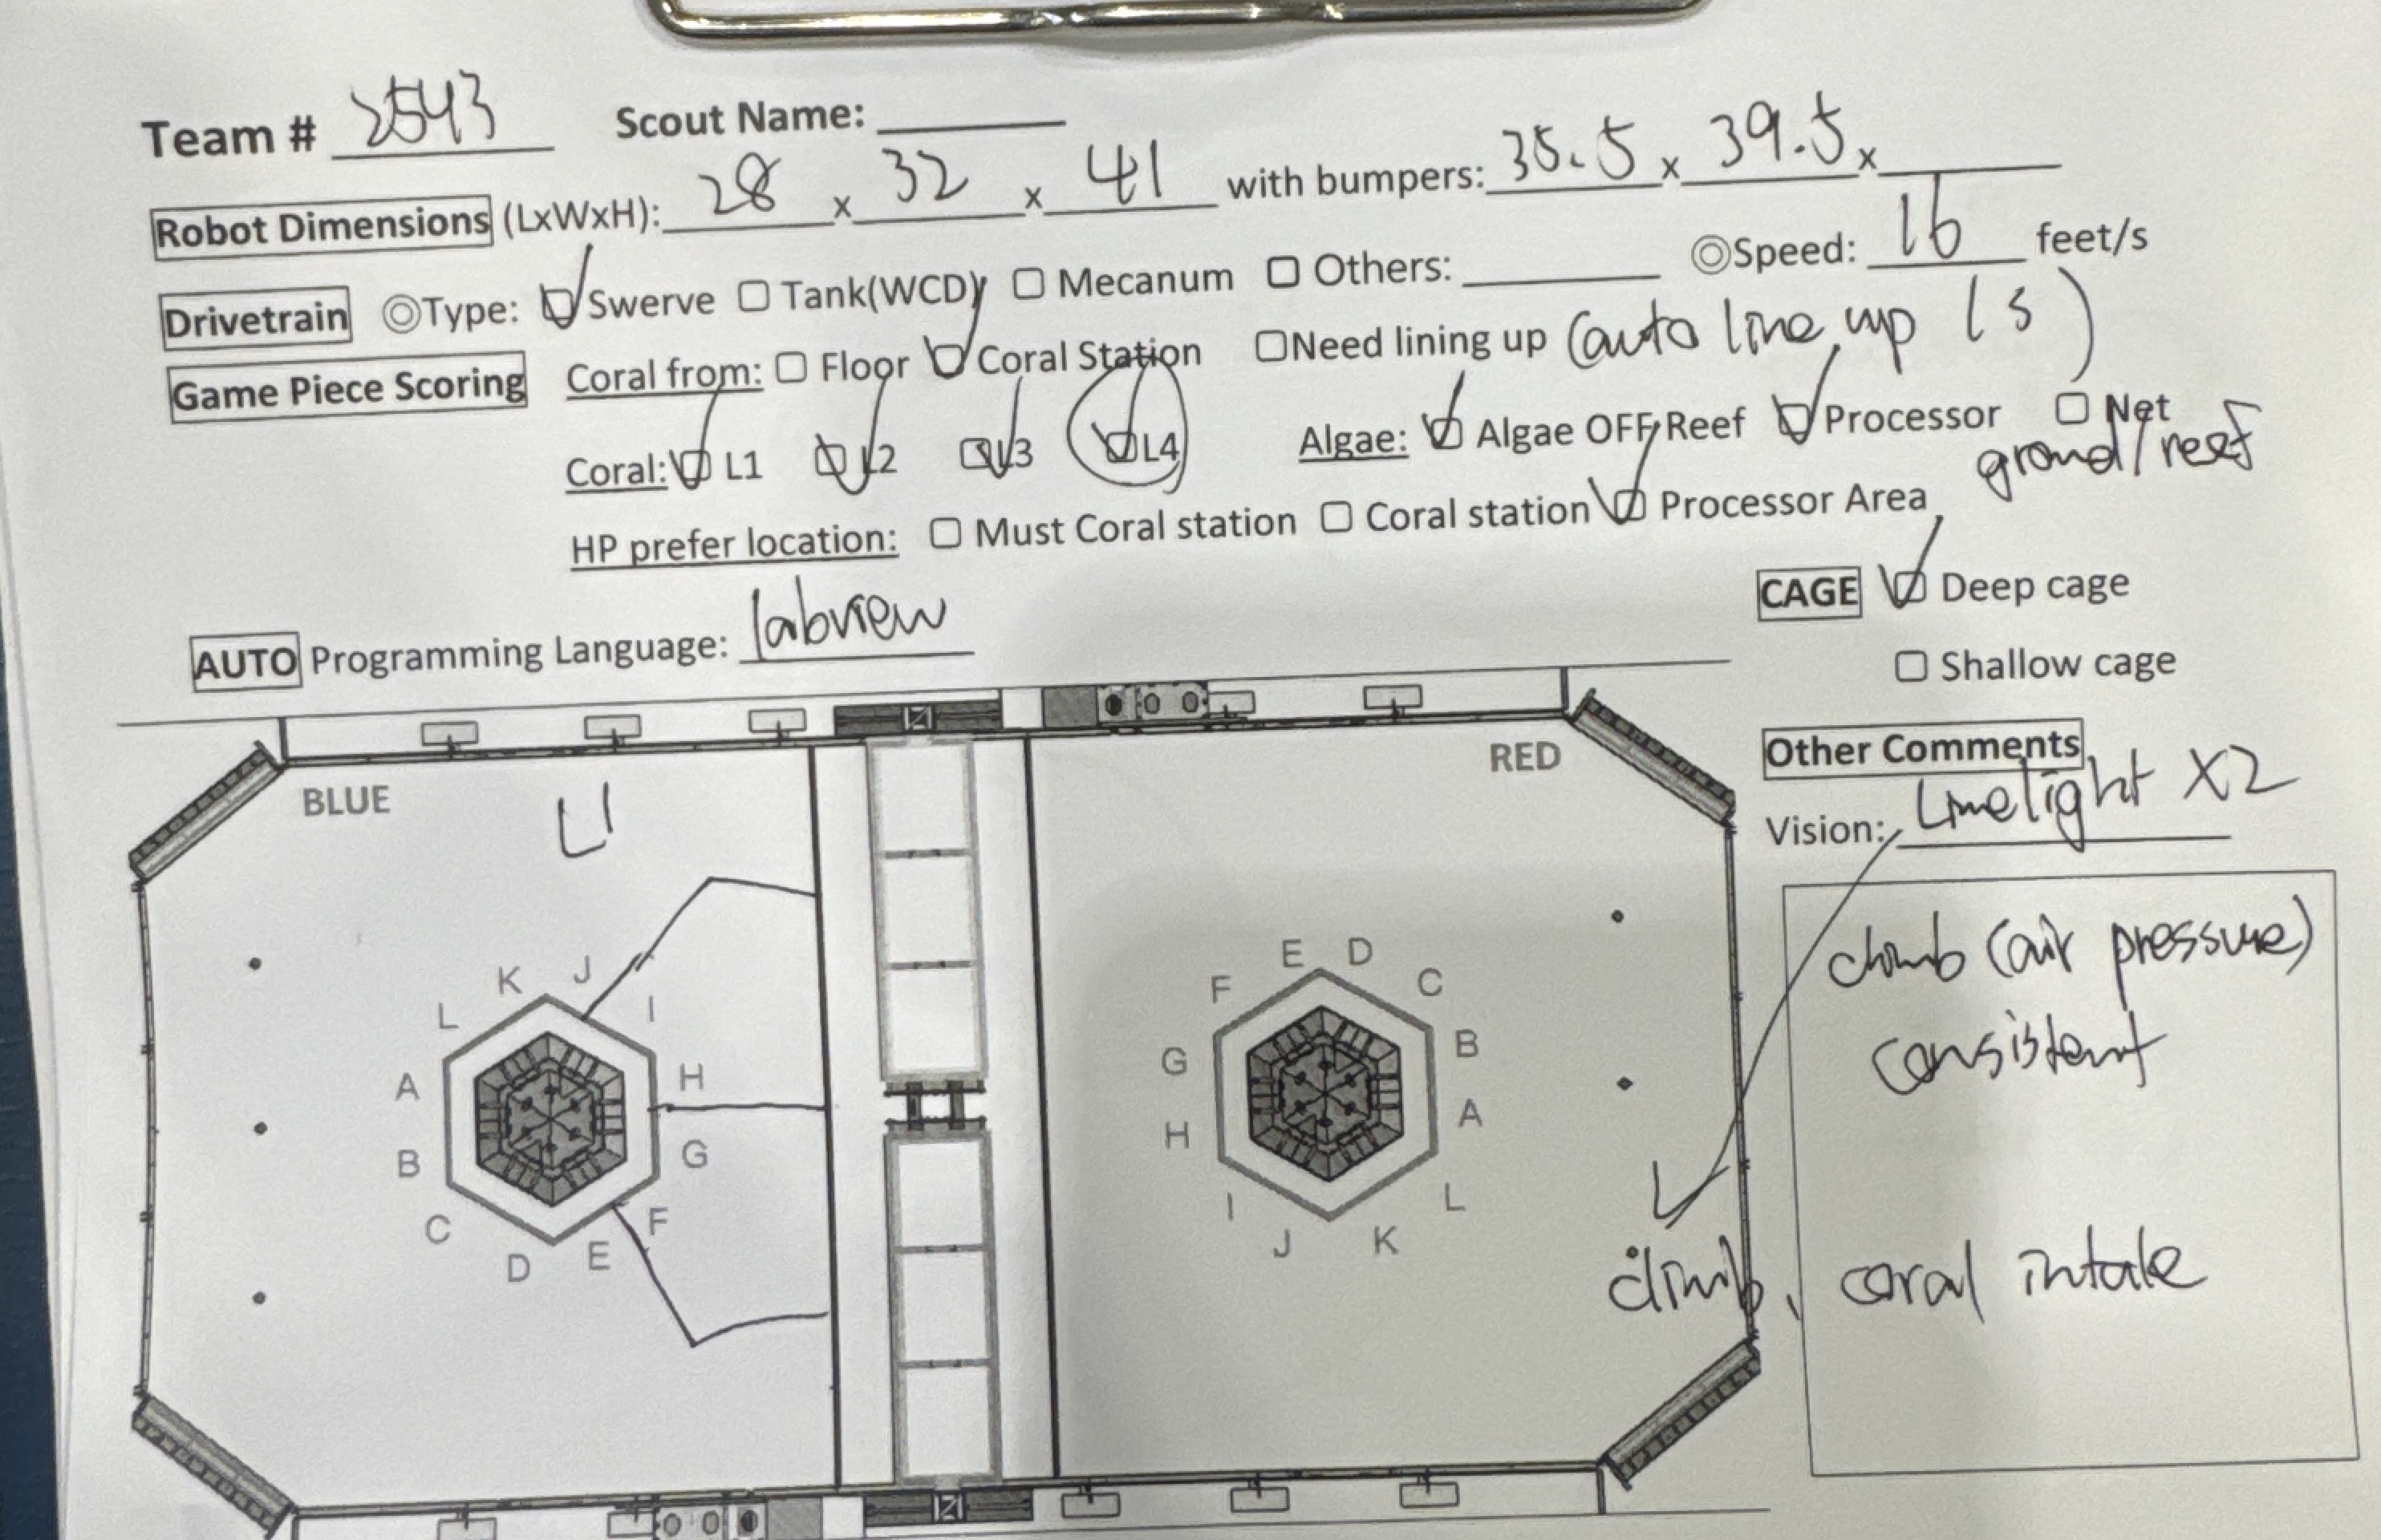 Team # 2543 Scout Name:
Robot Dimensions (LxWxH): 28 x 32 x 41 with bumpers: 35.5 x 39.5 x
Drivetrain ◎Type: ☑ Swerve ☐ Tank(WCD) ☐ Mecanum ☐ Others: ◎Speed: 16 feet/s
Game Piece Scoring Coral from: ☐ Floor ☑ Coral Station ☐Need lining up (auto line up 1s)
Coral: ☑ L1 ☑ L2 ☑ L3 ☑ L4 Algae: ☑ Algae OFF Reef ☑ Processor ☐ Net
ground/reef
HP prefer location: ☐ Must Coral station ☐ Coral station ☑ Processor Area
CAGE ☑ Deep cage
☐ Shallow cage
AUTO Programming Language: labview
Other Comments
Vision: Limelight X2
BLUE
RED
L1
K J
L I
A H
B G
C F
D E
E D
F C
G B
H A
I L
J K
climb (air pressure)
consistent
climb, coral intake